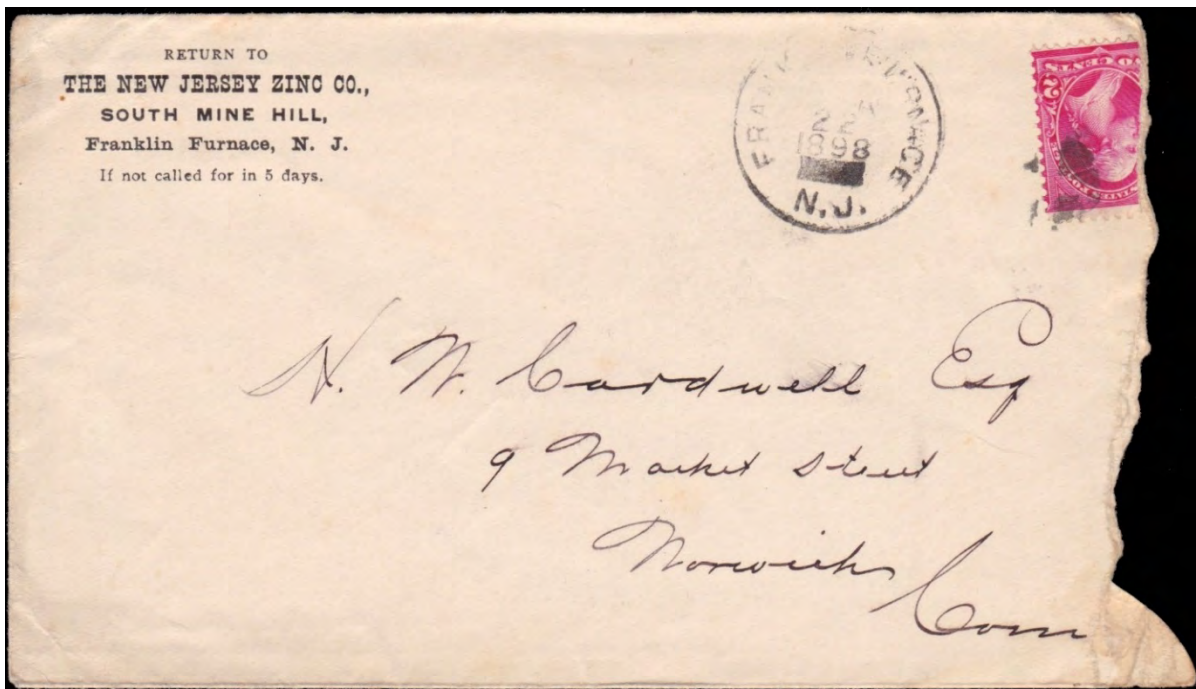 RETURN TO
THE NEW JERSEY ZINC CO.,
SOUTH MINE HILL,
Franklin Furnace, N. J.
If not called for in 5 days.
FRANKLIN FURNACE
1898
N.J.
CENTS
STATES POSTAGE
H. W. Cardwell Esq
9 Market Street
Norwich
Conn